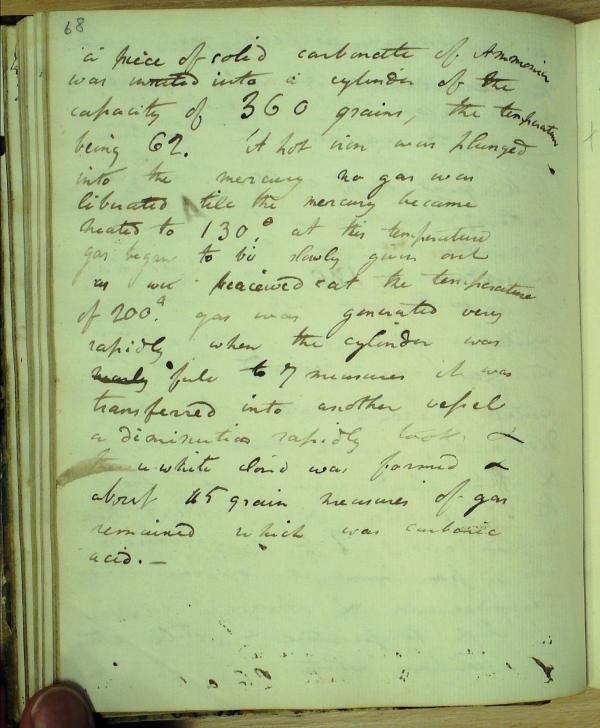 68
a piece of solid carbonate of Ammonia
was into a cylinder of the
capacity of 360 grains, the temperature
being 62. A hot iron was plunged
into the mercury no gas was
liberated till the mercury became
heated to 130° at this temperature
gas began to be slowly given out
as we perceived at the temperature
of 200°. gas was generated very
rapidly when the cylinder was
nearly full to 7 measures it was
transferred into another vessel
a diminution rapidly took &
a white cloud was formed &
about 15 grain measures of gas
remained which was carbonic
acid. —